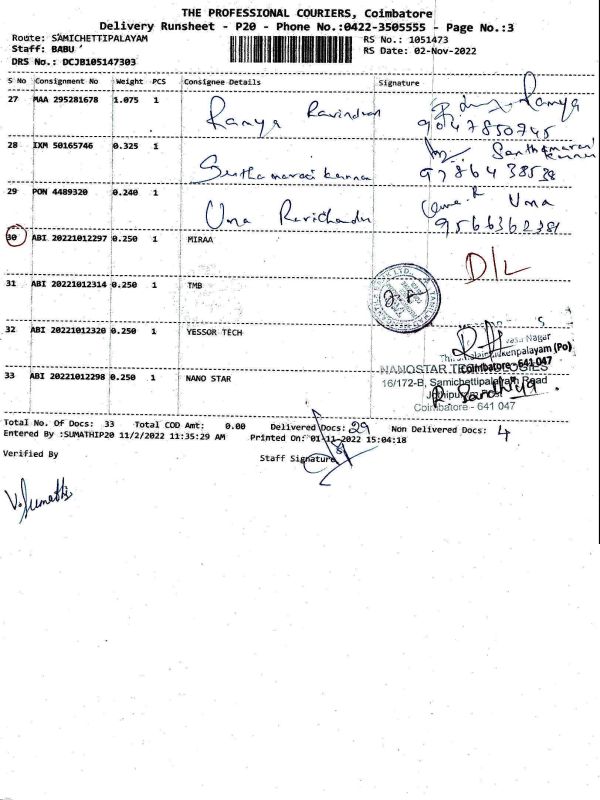 THE PROFESSIONAL COURIERS, Coimbatore
Delivery Runsheet - P20 - Phone No.:0422-3505555 - Page No.:3
Route: SAMICHETTIPALAYAM RS No.: 1051473
Staff: BABU RS Date: 02-Nov-2022
DRS No.: DCJB105147303
S No Consignment No Weight PCS Consignee Details Signature
27 MAA 295281678 1.075 1 Ramya Ravindran Ramya
9047850745
28 IXM 50165746 0.325 1 Senthamarai kannan Santhamarai kannan
9786438538
29 PON 4489320 0.240 1 Uma Ravichandran Uma.R Uma
9566362381
30 ABI 20221012297 0.250 1 MIRAA D/L
31 ABI 20221012314 0.250 1 TMB
32 ABI 20221012320 0.250 1 YESSOR TECH
Nagar
palayam (Po)
Coimbatore - 641 047
33 ABI 20221012298 0.250 1 NANO STAR
NANOSTAR TECHNOLOGIES
16/172-B, Samichettipalayam Road
Jothipuram Post
Coimbatore - 641 047
R Sandhiya
Total No. Of Docs: 33 Total COD Amt: 0.00 Delivered Docs: 29 Non Delivered Docs: 4
Entered By :SUMATHIP20 11/2/2022 11:35:29 AM Printed On: 01-11-2022 15:04:18
Verified By Staff Signature
V. Sumathi